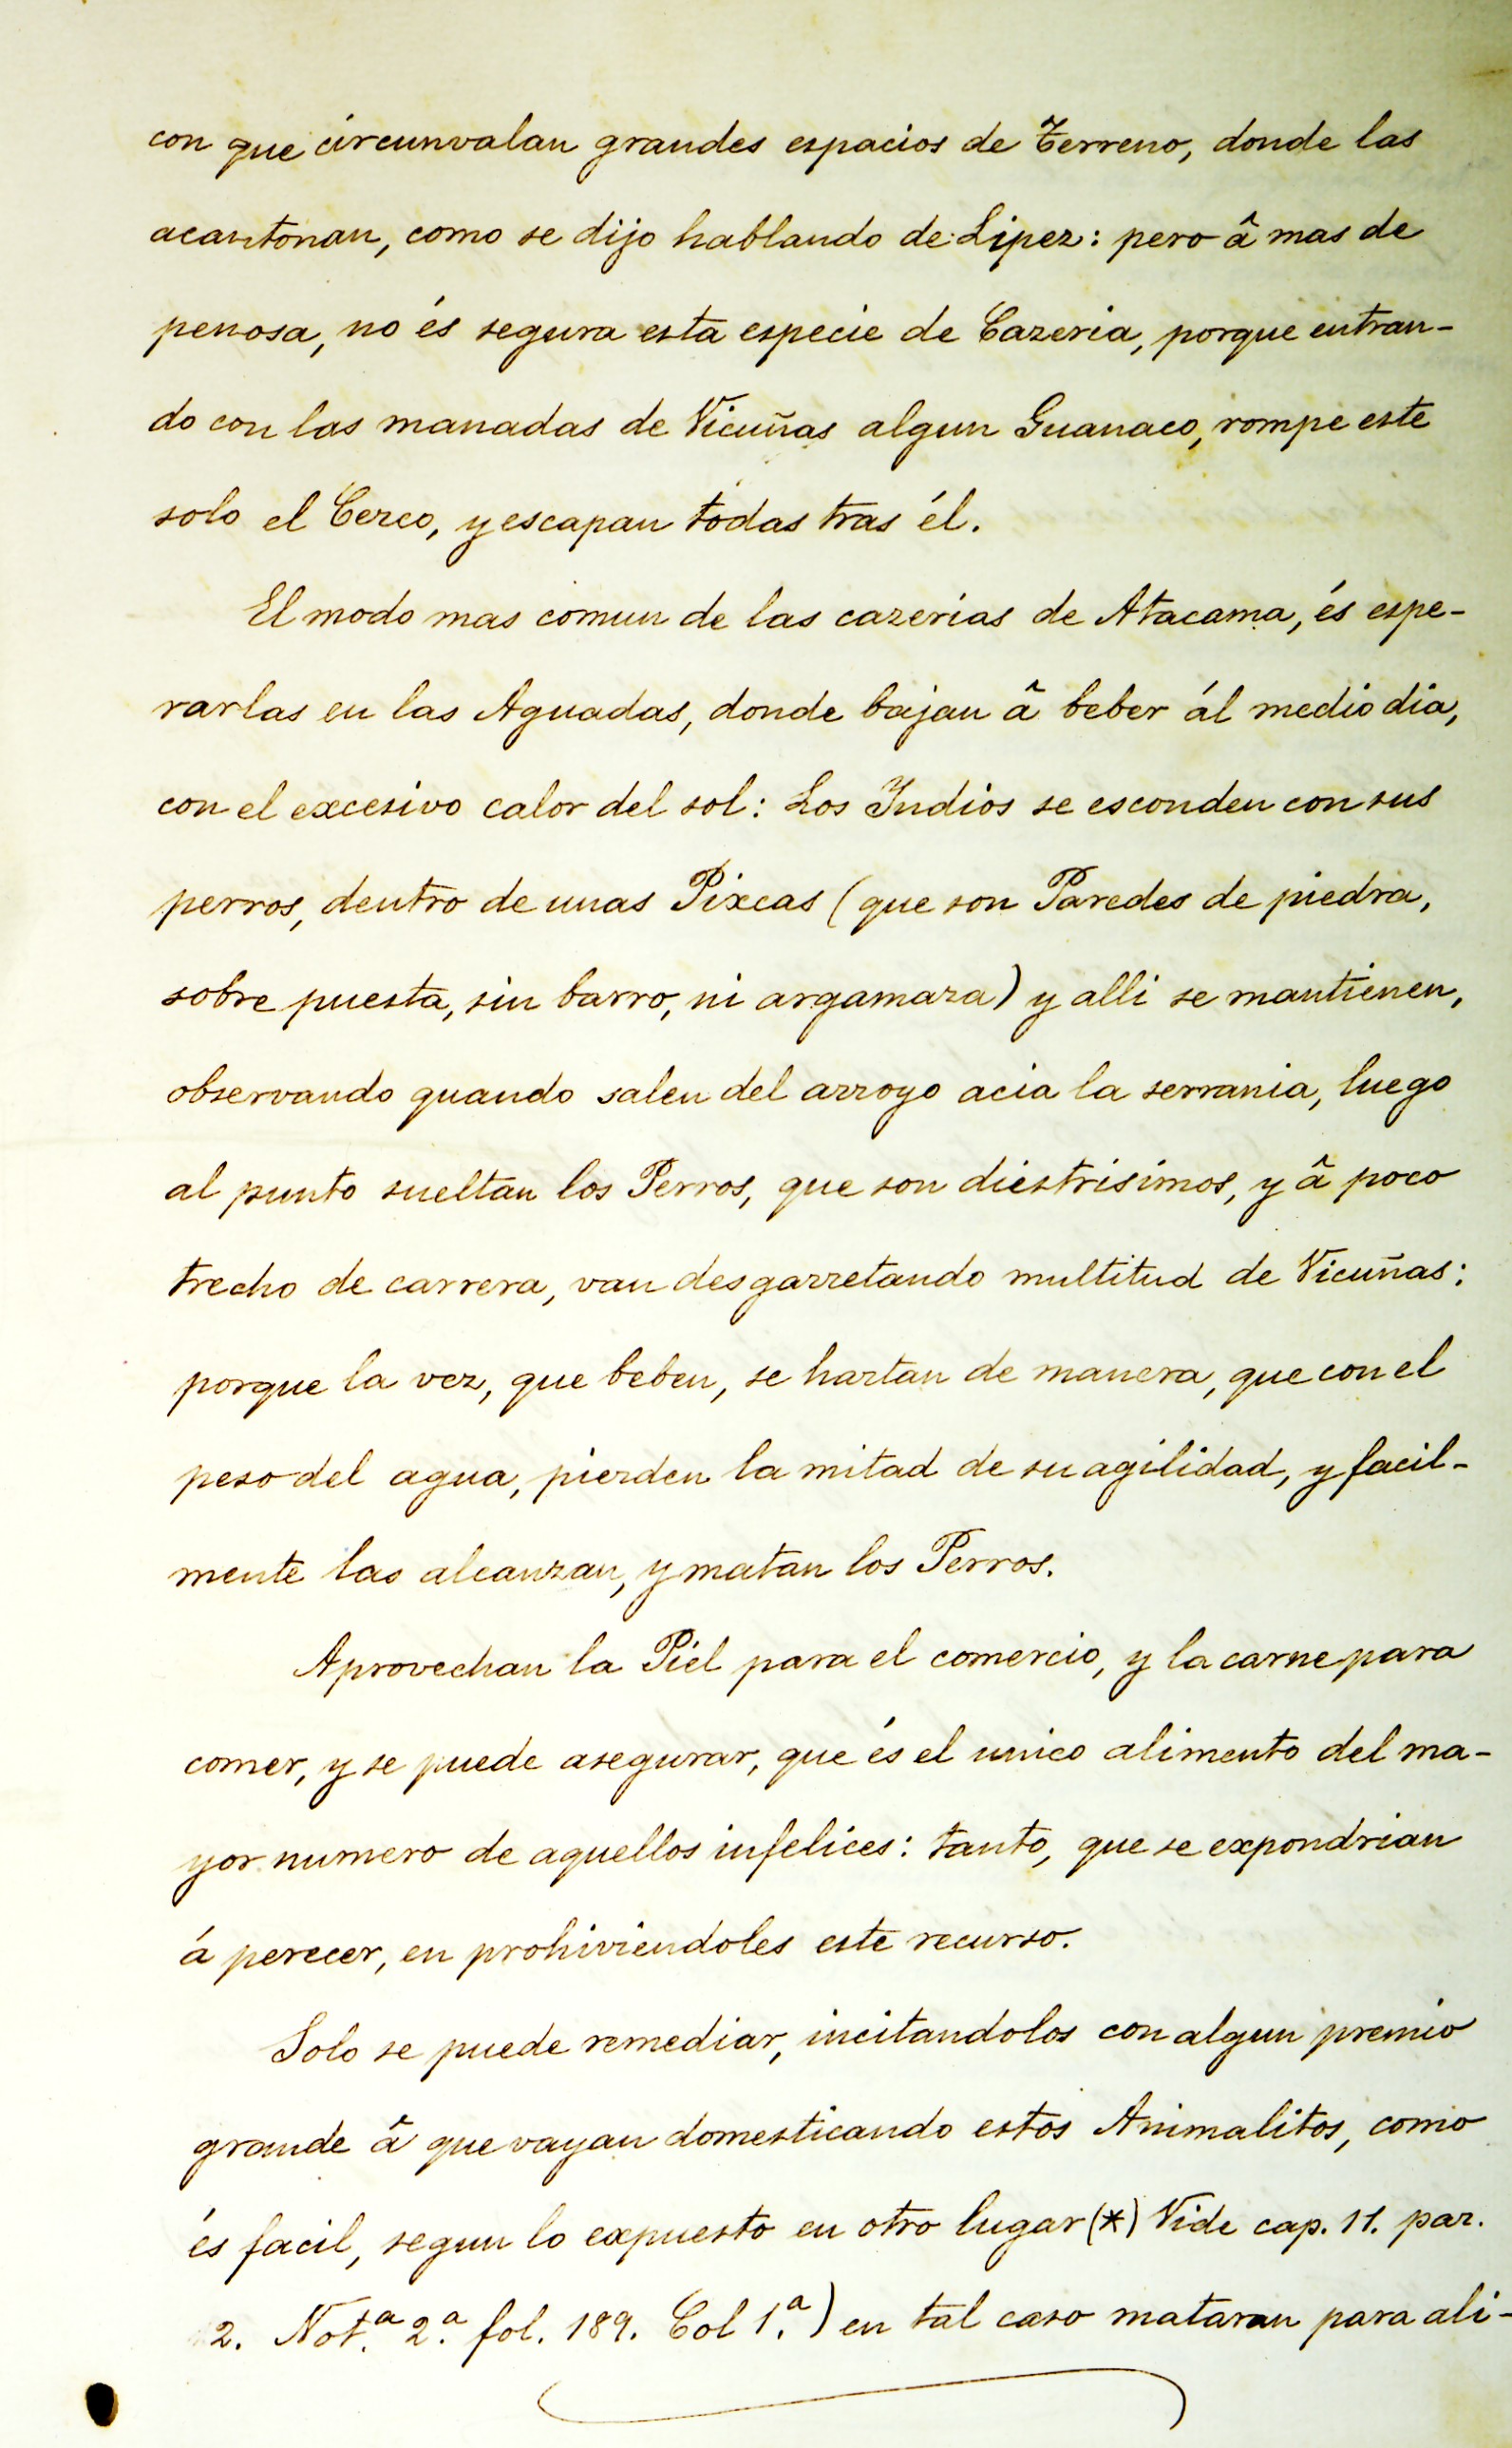 con que circunvalan grandes espacios de Terreno, donde las
acantonan, como se dijo hablando de Lipez: pero â mas de
penosa, no és segura esta especie de Cazeria, porque entran-
do con las manadas de Vicuñas algun Guanaco, rompe este
solo el Cerco, y escapan todas tras él.
El modo mas comun de las cazerias de Atacama, és espe-
rarlas en las Aguadas, donde bajan â beber ál medio dia,
con el excesivo calor del sol: Los Indios se esconden con sus
perros, dentro de unas Pixcas (que son Paredes de piedra,
sobre puesta, sin barro, ni argamaza) y alli se mantienen,
observando quando salen del arroyo acia la serrania, luego
al punto sueltan los Perros, que son diestrisimos, y â poco
trecho de carrera, van desgarretando multitud de Vicuñas:
porque la vez, que beben, se hartan de manera, que con el
peso del agua, pierden la mitad de su agilidad, y facil-
mente las alcanzan, y matan los Perros.
Aprovechan la Piel para el comercio, y la carne para
comer, y se puede asegurar, que és el unico alimento del ma-
yor numero de aquellos infelices: tanto, que se expondrian
á perecer, en prohiviendoles este recurso.
Solo se puede remediar, incitandolos con algun premio
grande â que vayan domesticando estos Animalitos, como
és facil, segun lo expuesto en otro lugar (*) Vide cap. 11. par.
2. Not.ª 2.ª fol. 189. Col 1.ª) en tal caso mataran para ali-